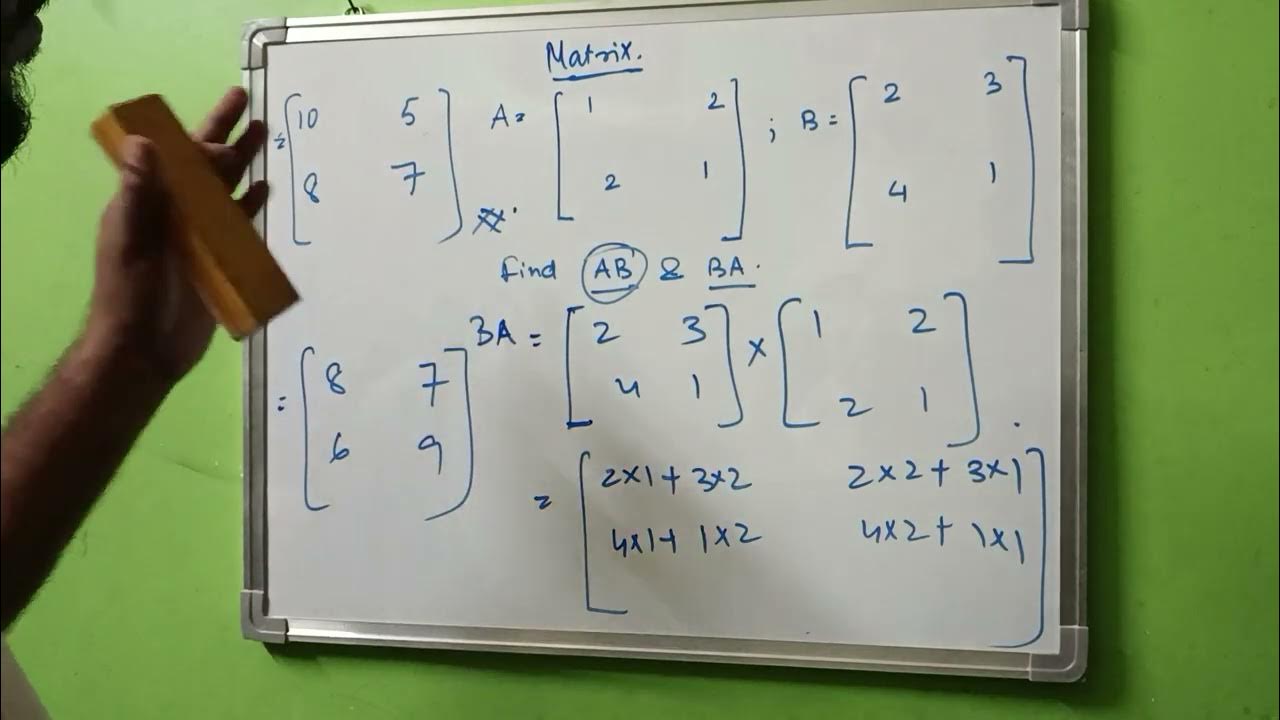 Matrix.
= [10 5
8 7]
A = [1 2
2 1] ; B = [2 3
4 1]
Find AB & BA.
BA = [2 3
4 1] × [1 2
2 1].
= [2×1+3×2 2×2+3×1
4×1+1×2 4×2+1×1]
= [8 7
6 9]